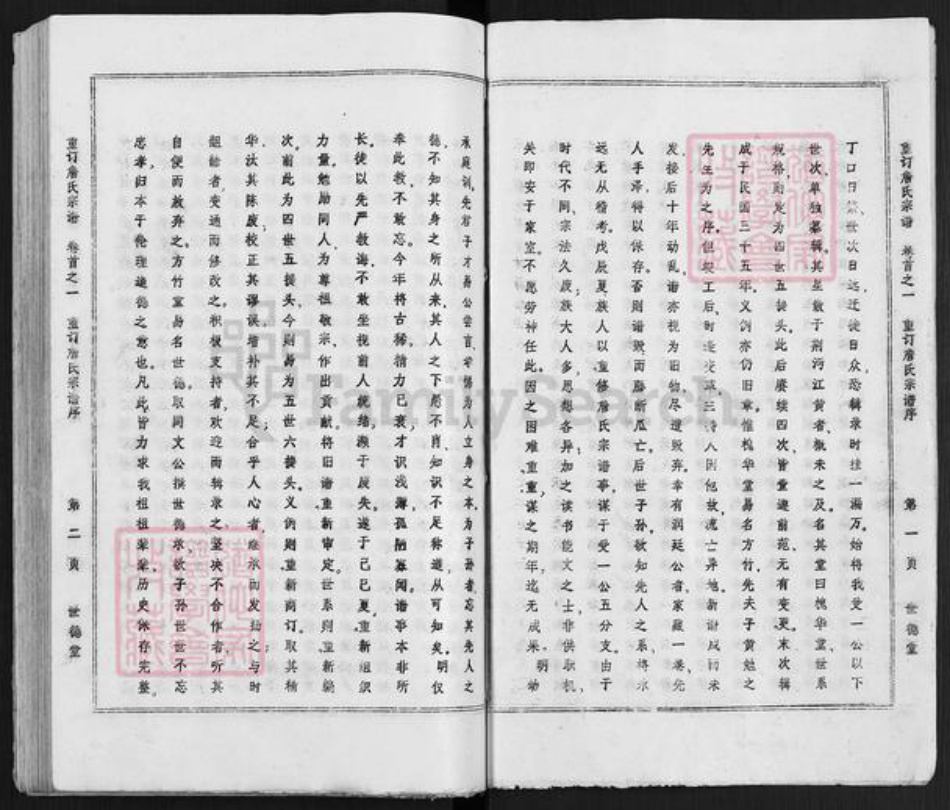 重订詹氏宗谱 卷首之一 重订詹氏宗谱序 第一页 世德堂
丁口日繁，世次日远，迁徙日众，恐辑录时挂一漏万，始将我受一公以下
世次，单独纂辑，其星散于荆河江黄者，概未之及。名其堂曰槐华堂，世系
规格则定为四世五提头，此后赓续四次，皆重遵前范，无有变更。末次辑
成于民国三十五年，义例亦仍旧章，惟槐华堂易名方竹，先夫子黄勉之
先生为之序。但竣工后，时逢变革，三修人因他故流亡异地，新谱成而未
发，接后十年动乱，谱亦视为旧物，尽遭毁弃，幸有润廷公者，家藏一卷，先
人手泽，得以保存。否则谱毁而融断瓜亡，后世子孙，欲知先人之系，将永
远无从稽考。戊辰夏族人以重修詹氏宗谱事，谋于受一公五分支由于
时代不同，宗法久废，族大人多，思想各异，加之读书能文之士，非供职机
关即安于家室，不愿劳神任此。因之困难重重，谋之期年，迄无成果。明 幼
承庭训，先君子才 公尝言，孝悌为人立身之本，为子孙者，忘其先人之
德，不知其身之所从来，其人之下愚不肖，知识不足称道从可知矣。明 仅
奉此教，不敢忘。今年将古稀，精力已衰，才识浅薄，孤陋寡闻，谱事本非所
长，徒以先严教诲，不敢坐视前人统绪，濒于废失，遂于己巳夏，重新组织
力量，勉励同人，为尊祖敬宗作出贡献，将旧谱重新审定，世系则重新编
次，前此为四世五提头，今则易为五世六提头，义例则重新商订，取其精
华，汰其陈废，校正其谬误，增补其不足，合乎人心者，继承而发扬之，与时
龃龉者，变通而修改之，积极支持者，欢迎而辑录之，坚决不合作者，听其
自便而放弃之。方竹堂易名世德，取同文公撰世德求，欲子孙世世不忘
忠孝，归本于伦理道德之意也。凡此皆力求我祖祖辈辈历史，保存完整
重订詹氏宗谱 卷首之一 重订詹氏宗谱序 第二页 世德堂
FamilySearch